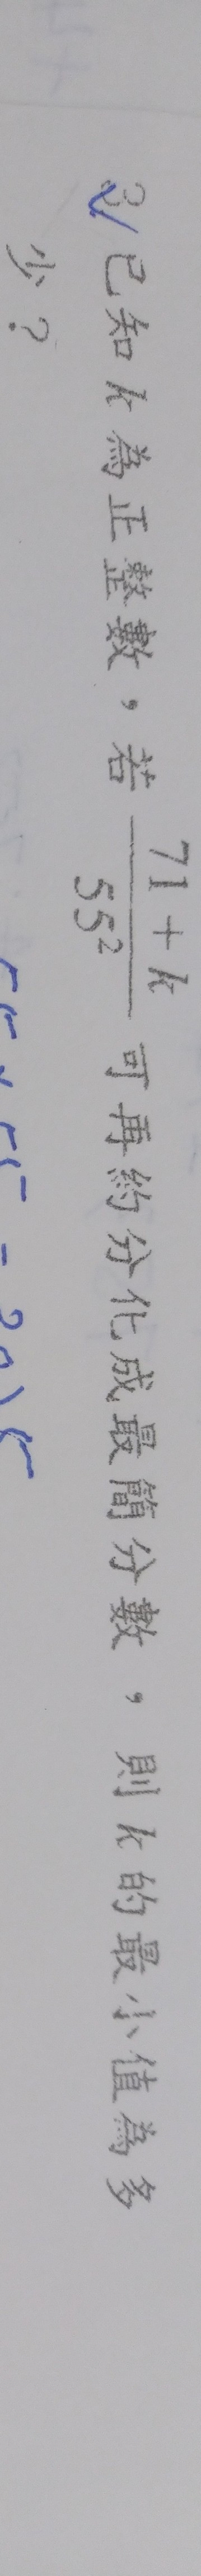 3 已知 k 為正整數，若 \frac{71+k}{55^2} 可再約分化成最簡分數，則 k 的最小值為多
少？